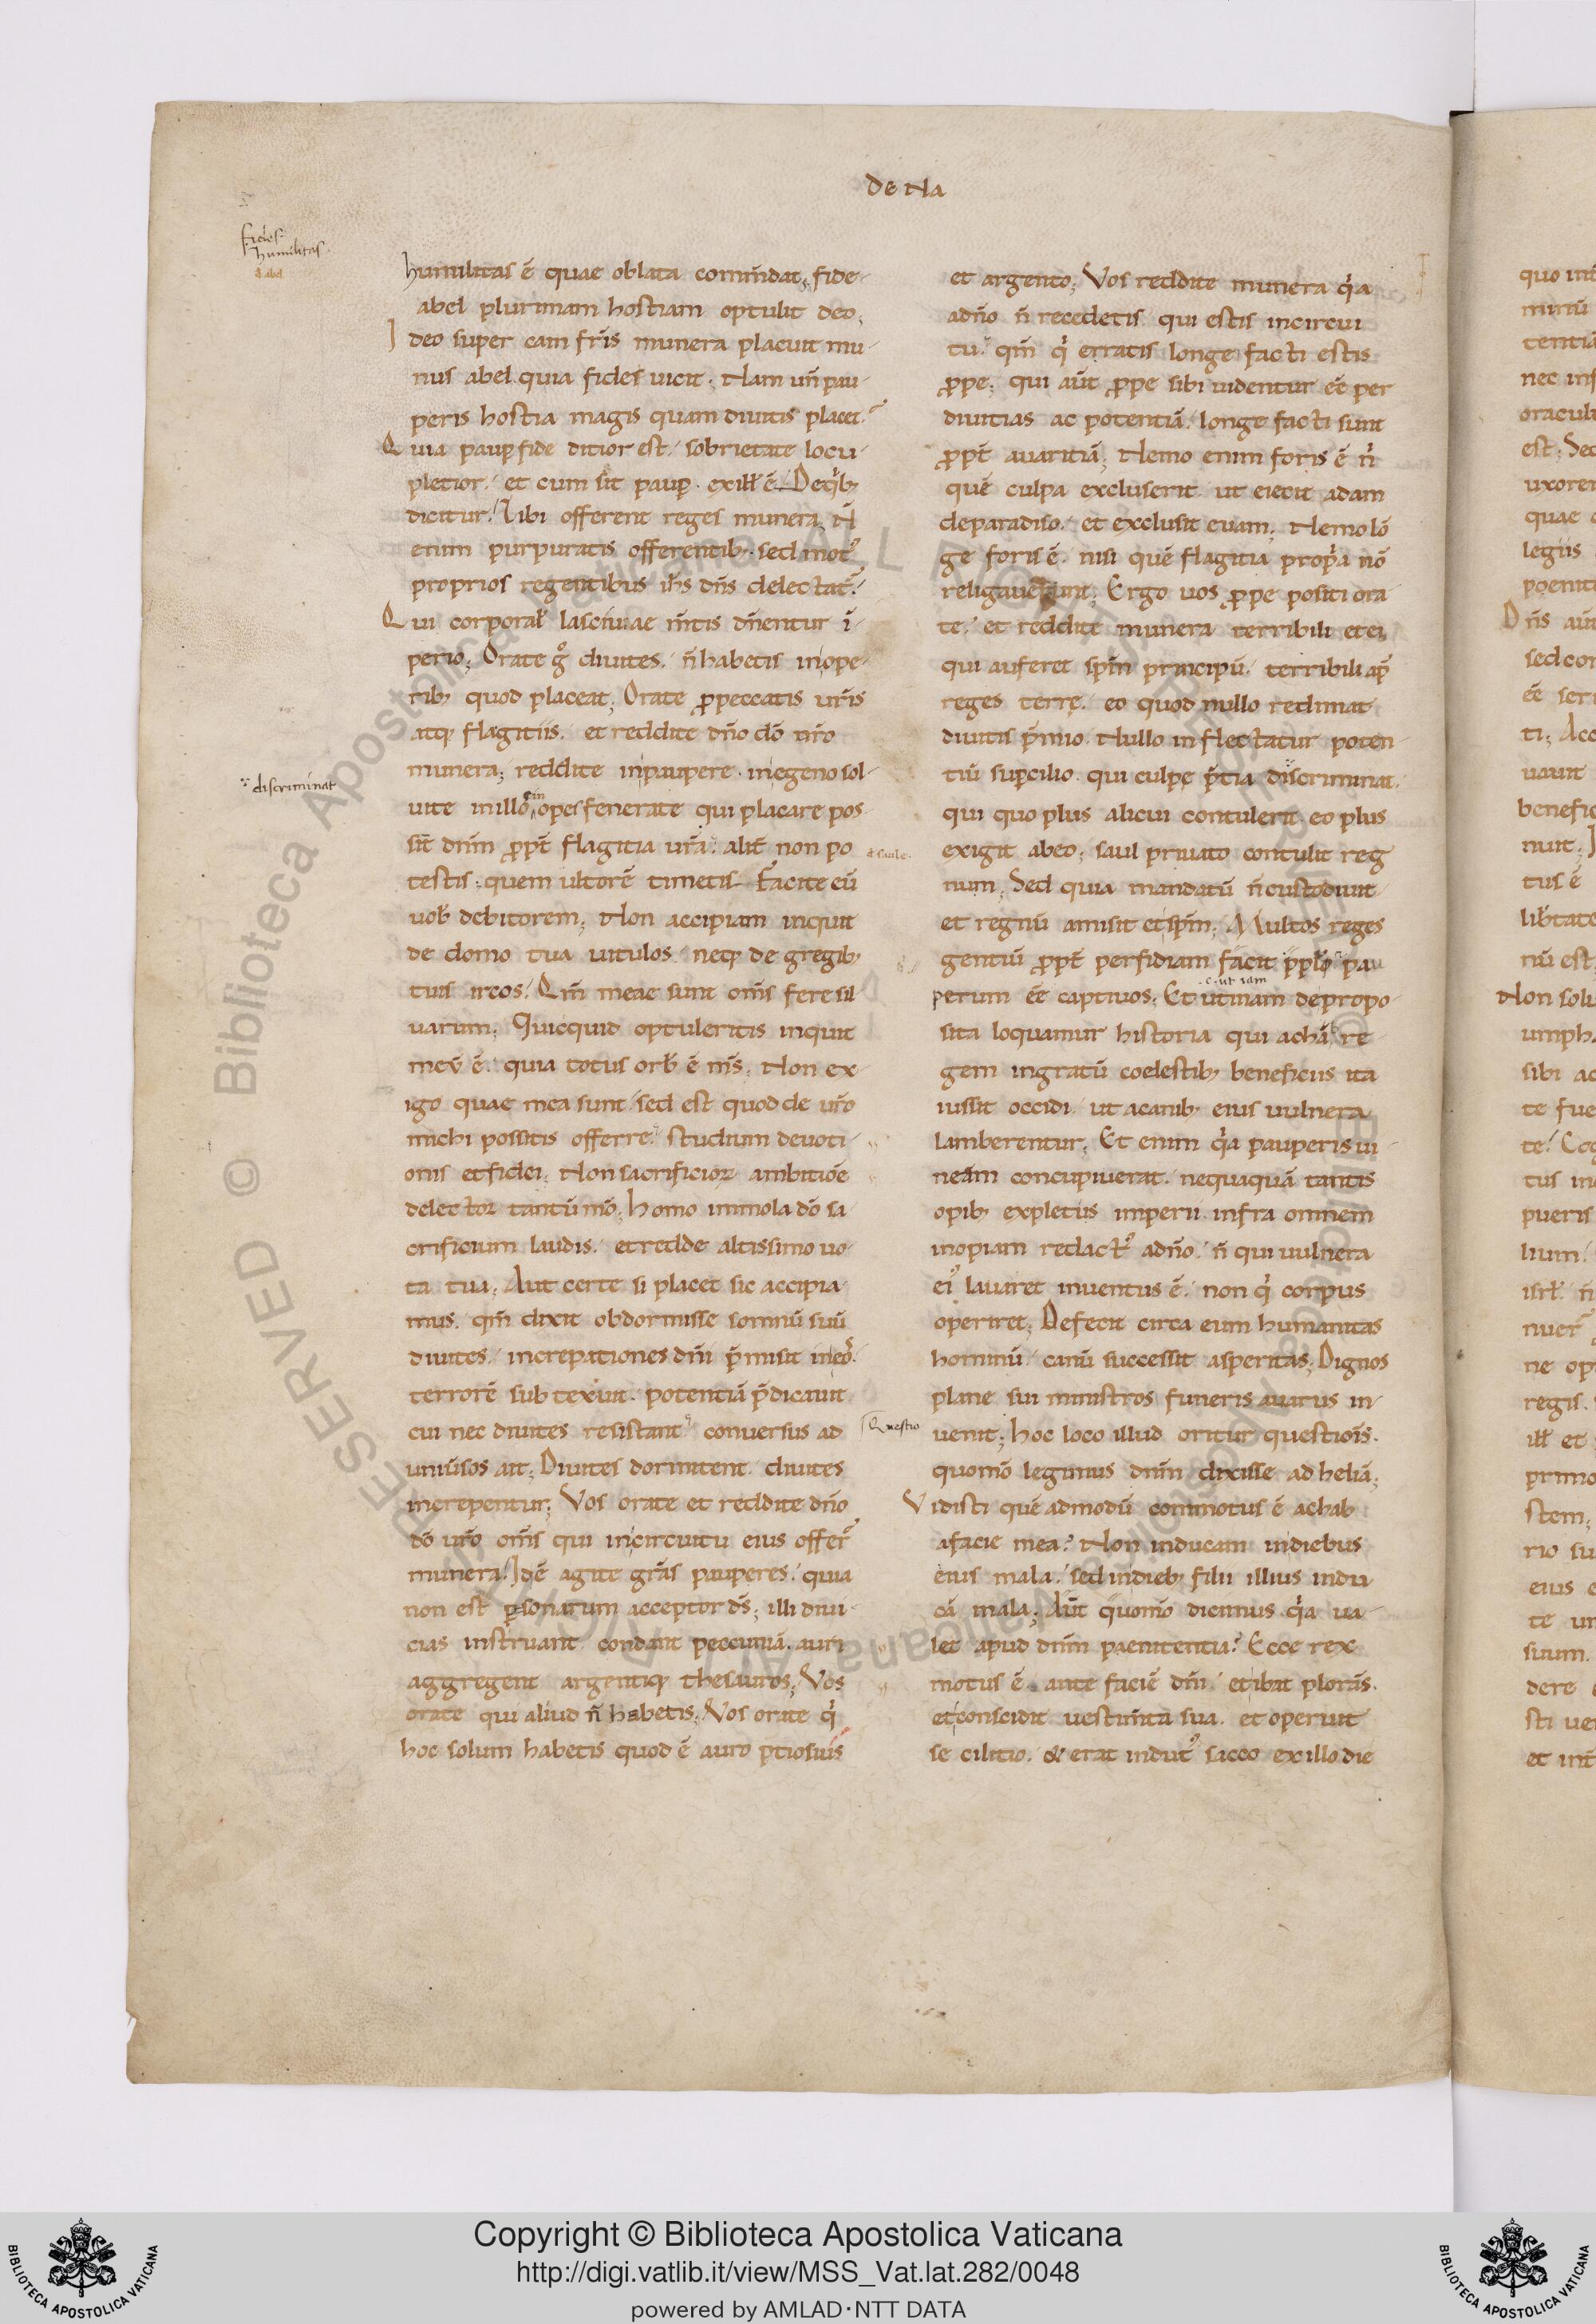 DE NA
fides
humilitas.
d' abel
humilitas ē quae oblata com̄ndat; fide
abel plurimam hostiam optulit deo;
Ideo super cam fr̄is munera placuit mu
nus abel quia fides uicit. Nam un̄ pau
peris hostia magis quam diuitis placet?
Quia paup̄ fide ditior est. sobrietate locu
pletior. et cum sit paup̄. ex ill' ē. De q'b;
dicitur. Tibi offerent reges munera. N̄
enim purpuratis offerentib;. sed mot'
proprios regentibus ih̄s dn̄s delectat̄.
Qui corporal' lasciuiae m̄tis dn̄entur ī
perio; Orate g° diuites. n̄ habetis in ope
rib; quod placeat; Orate ꝓ peccatis ur̄is
atq; flagitiis. et reddite dn̄o dō nr̄o
munera; reddite in paupere. in egeno sol
uite in illo opes fenerate qui placare pos
sit̄ dn̄m ꝓpt̄ flagitia ur̄a. alit̄ non po
testis. quem ultorē timetis. Facite eū
uob' debitorem; Non accipiam inquit
de domo tua uitulos neq; de gregib;
tuis ircos. Qm̄ meae sunt om̄s fere sil
uarum; Quicquid optuleritis inquit
meū ē. quia totus orb' ē m̄s; Non ex
igo quae mea sunt sed est quod de ur̄o
michi possitis offerre. studium deuoti
onis et fidei; Non sacrificioꝝ ambitiōe
delector tantū mō; Homo immola dō sa
crificium laudis. et redde altissimo uo
ta tua; Aut certe si placet sic accipia
mus. qm̄ dixit obdormisse somnū suū
diuites. increpationes dn̄i p̄misit in eos.
terrorē subtexuit. potentiā p̄dicauit
cui nec diuites resistant conuersus ad
uniūsos ait; Diuites dormitent diuites
increpentur; Vos orate et reddite dn̄o
dō ur̄o om̄s qui in circuitu eius offer̄
munera. Idē agite grās pauperes. quia
non est ꝑsonarum acceptor dS; illi diui
cias instruant condant peccuniā. auri
aggregent argentiq; thesauros; Vos
orate qui aliud n̄ habetis; Vos orate q'
hoc solum habetis quod ē auro p̄tiosius
discriminat
et argento; Vos reddite munera q'a
ad n̄o n̄ recedetis qui estis in circui
tu. qm̄ q' erratis longe facti estis
ꝓpe; qui aūt ꝓpe sibi uidentur eē per
diuitias ac potentiā. longe facti sunt
ꝓpt̄ auaritiā; Nemo enim foris ē n'
quē culpa excluserit ut eiecit adam
de paradiso. et exclusit euam; Nemo lō
ge foris ē. nisi quē flagitia prop'a nō
religauerunt; Ergo uos ꝓpe positi ora
te. et reddite munera terribili et ei
qui auferet spm̄ principū. terribili ap̄
reges terrę. eo quod nullo redimat
diuitis p̄mio. Nullo inflectatur poten
tiū suꝑcilio. qui culpe p̄tia discriminat.
qui quo plus alicui contulerit eo plus
exigit ab eo; saul priuato contulit reg
num; Sed quia mandatū n̄ custodiuit
et regnū amisit et spm̄; Multos reges
gentiū ꝓpt̄ perfidiam facit p̄ pl'o pau
perum eē captiuos; Et utinam de propo
sita loquamur historia qui achab re
gem ingratū coelestib; beneficiis ita
iussit occidi. ut a canib; eius uulnera
lamberentur; Et enim q'a pauperis ui
neam concupiuerat. nequaquā tantis
opib; expletus imperii infra omnem
inopiam redact' a dn̄o. n̄ qui uulnera
ei' lauaret inuentus ē. non q' corpus
operiret; Defecit circa eum humanitas
hominū canū successit asperitas; Dignos
plane sui ministros funeris auarus in
uenit; Hoc loco illud oritur questiois̄.
quomō legimus dn̄m dixisse ad heliā;
Vidisti quē admodū commotus ē achab
a facie mea? Non inducam in diebus
eius mala. sed in dieb; filii illius indu
cā mala; Aūt quomō dicimus q'a ua
let apud dn̄m paenitentia? Ecce rex
motus ē ante faciē dn̄i. et ibat plorās.
et conscidit uestim̄ta sua. et operuit
se cilitio. & erat indut' sacco ex illo die
d' saule.
Questio
Copyright © Biblioteca Apostolica Vaticana
http://digi.vatlib.it/view/MSS_Vat.lat.282/0048
powered by AMLAD·NTT DATA
BIBLIOTECA APOSTOLICA VATICANA
BIBLIOTECA APOSTOLICA VATICANA